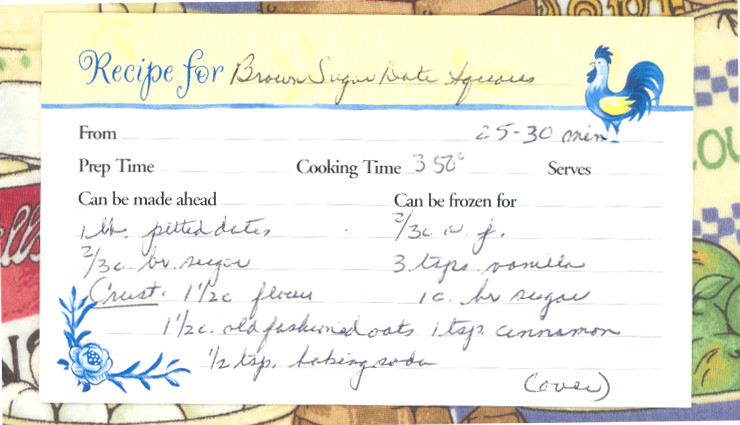 Recipe for Brown Sugar Date Squares
From 25-30 min.
Prep Time Cooking Time 350° Serves
Can be made ahead Can be frozen for
1 lb. pitted dates 2/3c. o. j.
2/3c. br. sugar 3 tsps. vanilla
Crust. 1 1/2c. flour 1c. br sugar
1 1/2c. old fashioned oats 1 tsp. cinnamon
1/2 tsp. baking soda
(over)